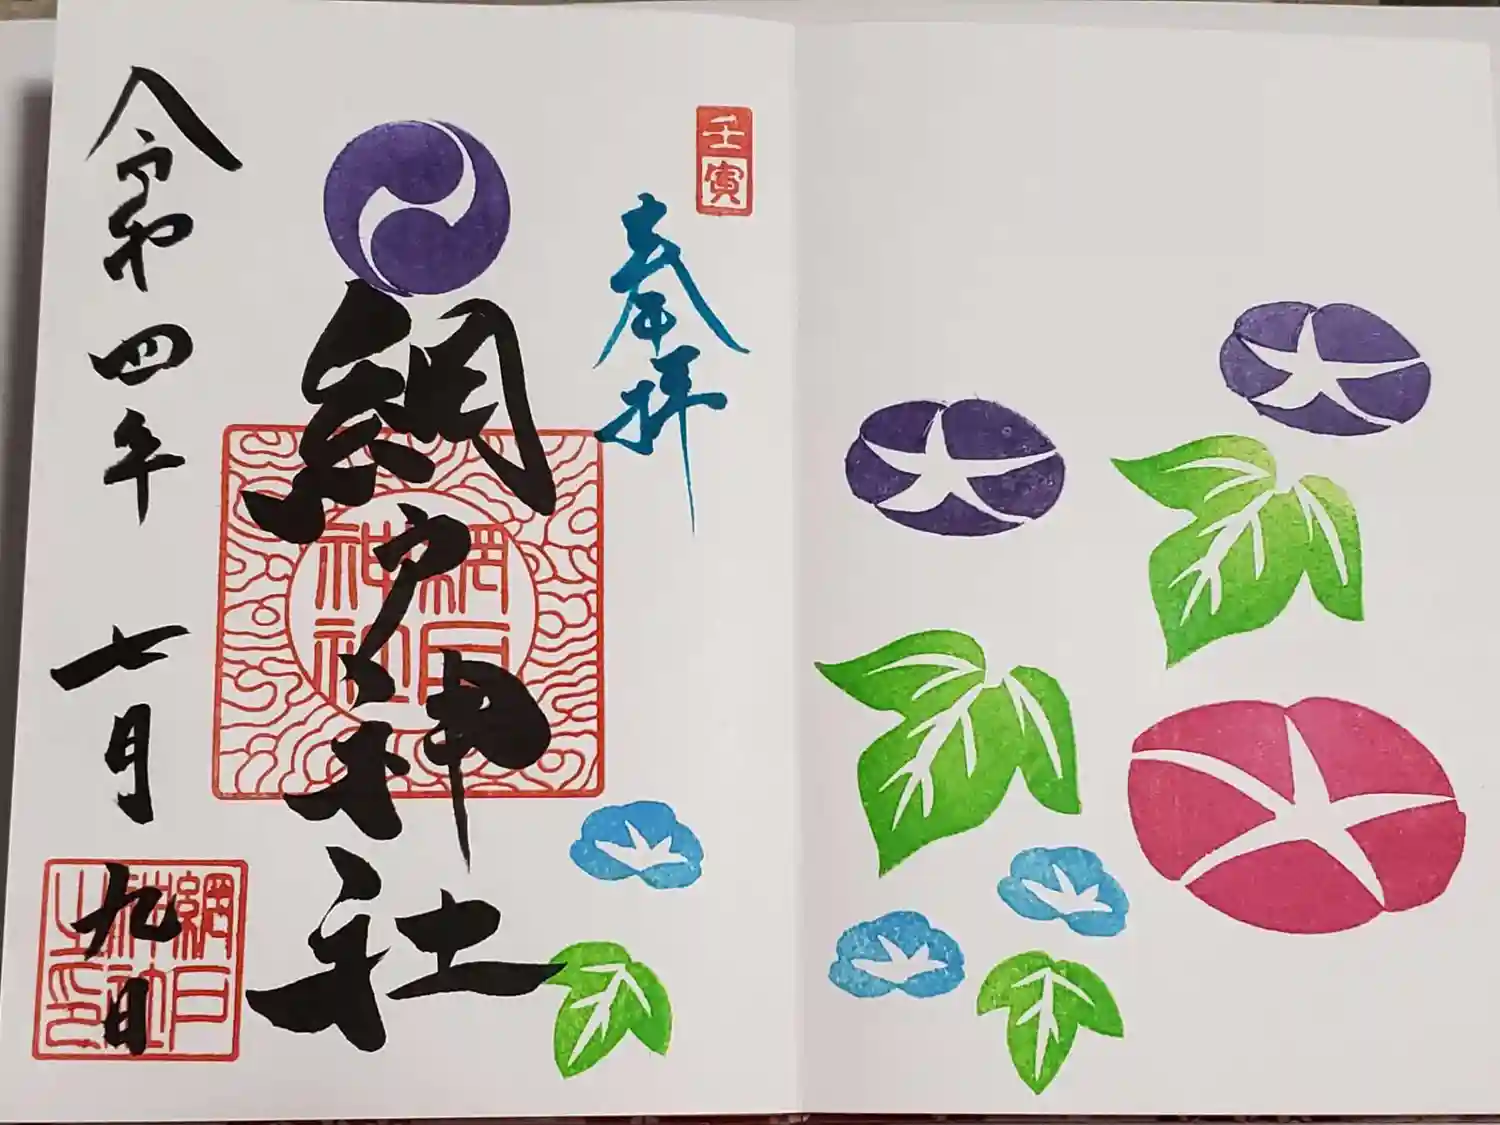 壬寅
奉拝
網戸神社
網戸神社
令和四年 七月 九日
網戸神社之印